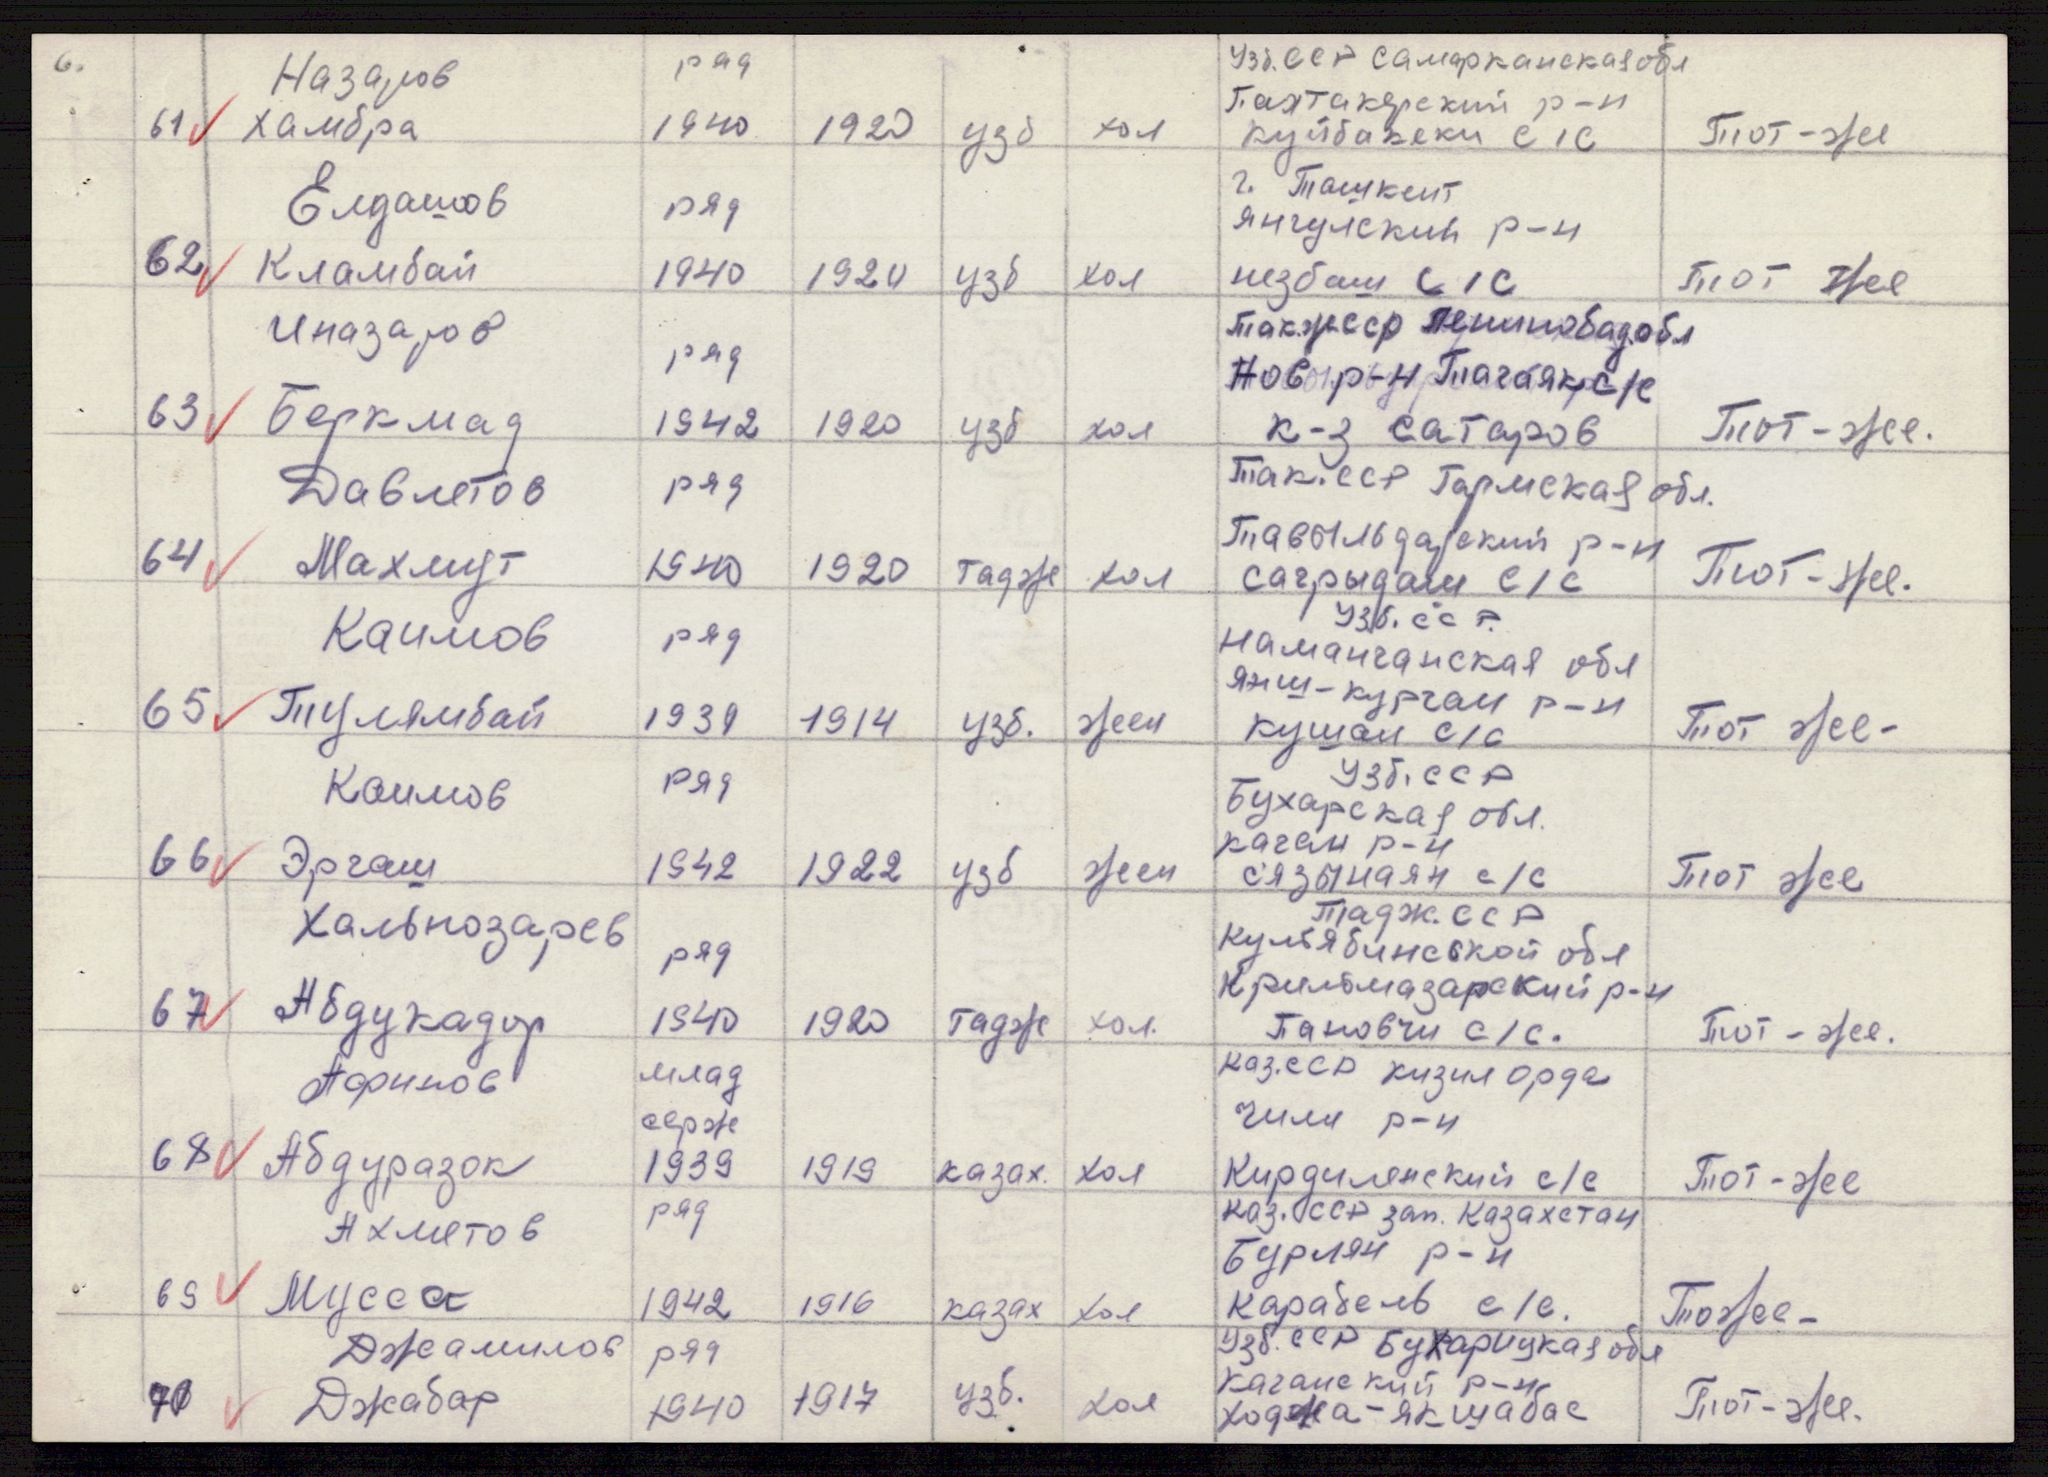 6.
Назаров ряд Узб.ССР Самарканская обл
Пахтакорский р-н
61 Хамбра 1940 1920 узб хол Куйбакеки С/С Тот-же
Елдашов ряд г. Ташкент
Янгулский р-н
62 Кламбай 1940 1920 узб хол незбаш С/С Тот же
Иназаров Такж ССР Ленинобад.обл
ряд Нов р-н Тагаяк с/с
63 Беркмад 1942 1920 узб хол к-з Сатаров Тот-же.
Давлетов ряд Так.ССР Гармская обл.
Тавыльдарский р-н
64 Махмут 1940 1920 тадж хол Сагрыдаш С/С Тот-же.
Каимов ряд Узб.ССР.
Наманганская обл
Яны-курган р-н
65 Тулямбай 1939 1914 узб. жен Кушан С/С Тот же-
Каимов ряд Узб.ССР
Бухарская обл.
Каган р-н
66 Эргаш 1942 1922 узб жен сязынаян с/с Тот же
Хальнозарев ряд Тадж.ССР
Кулябинской обл
Крильмазарский р-н
67 Абдукадор 1940 1920 тадж хол. Пановчи с/с. Тот-же.
Афинов млад Каз.ССР кизил орда
серж чили р-н
68 Абдуразок 1939 1919 казах. хол Кирдилянский с/с Тот-же
Ахметов ряд Каз.ССР зап. Казахстан
Бурлян р-н
69 Мусса 1942 1916 казах хол Карабель с/с. Тоже-
Джамилов ряд Узб.ССР Бухарицкая обл
Каганский р-н
70 Джабар 1940 1917 узб. хол Ходжа-якшабас Тот-же.